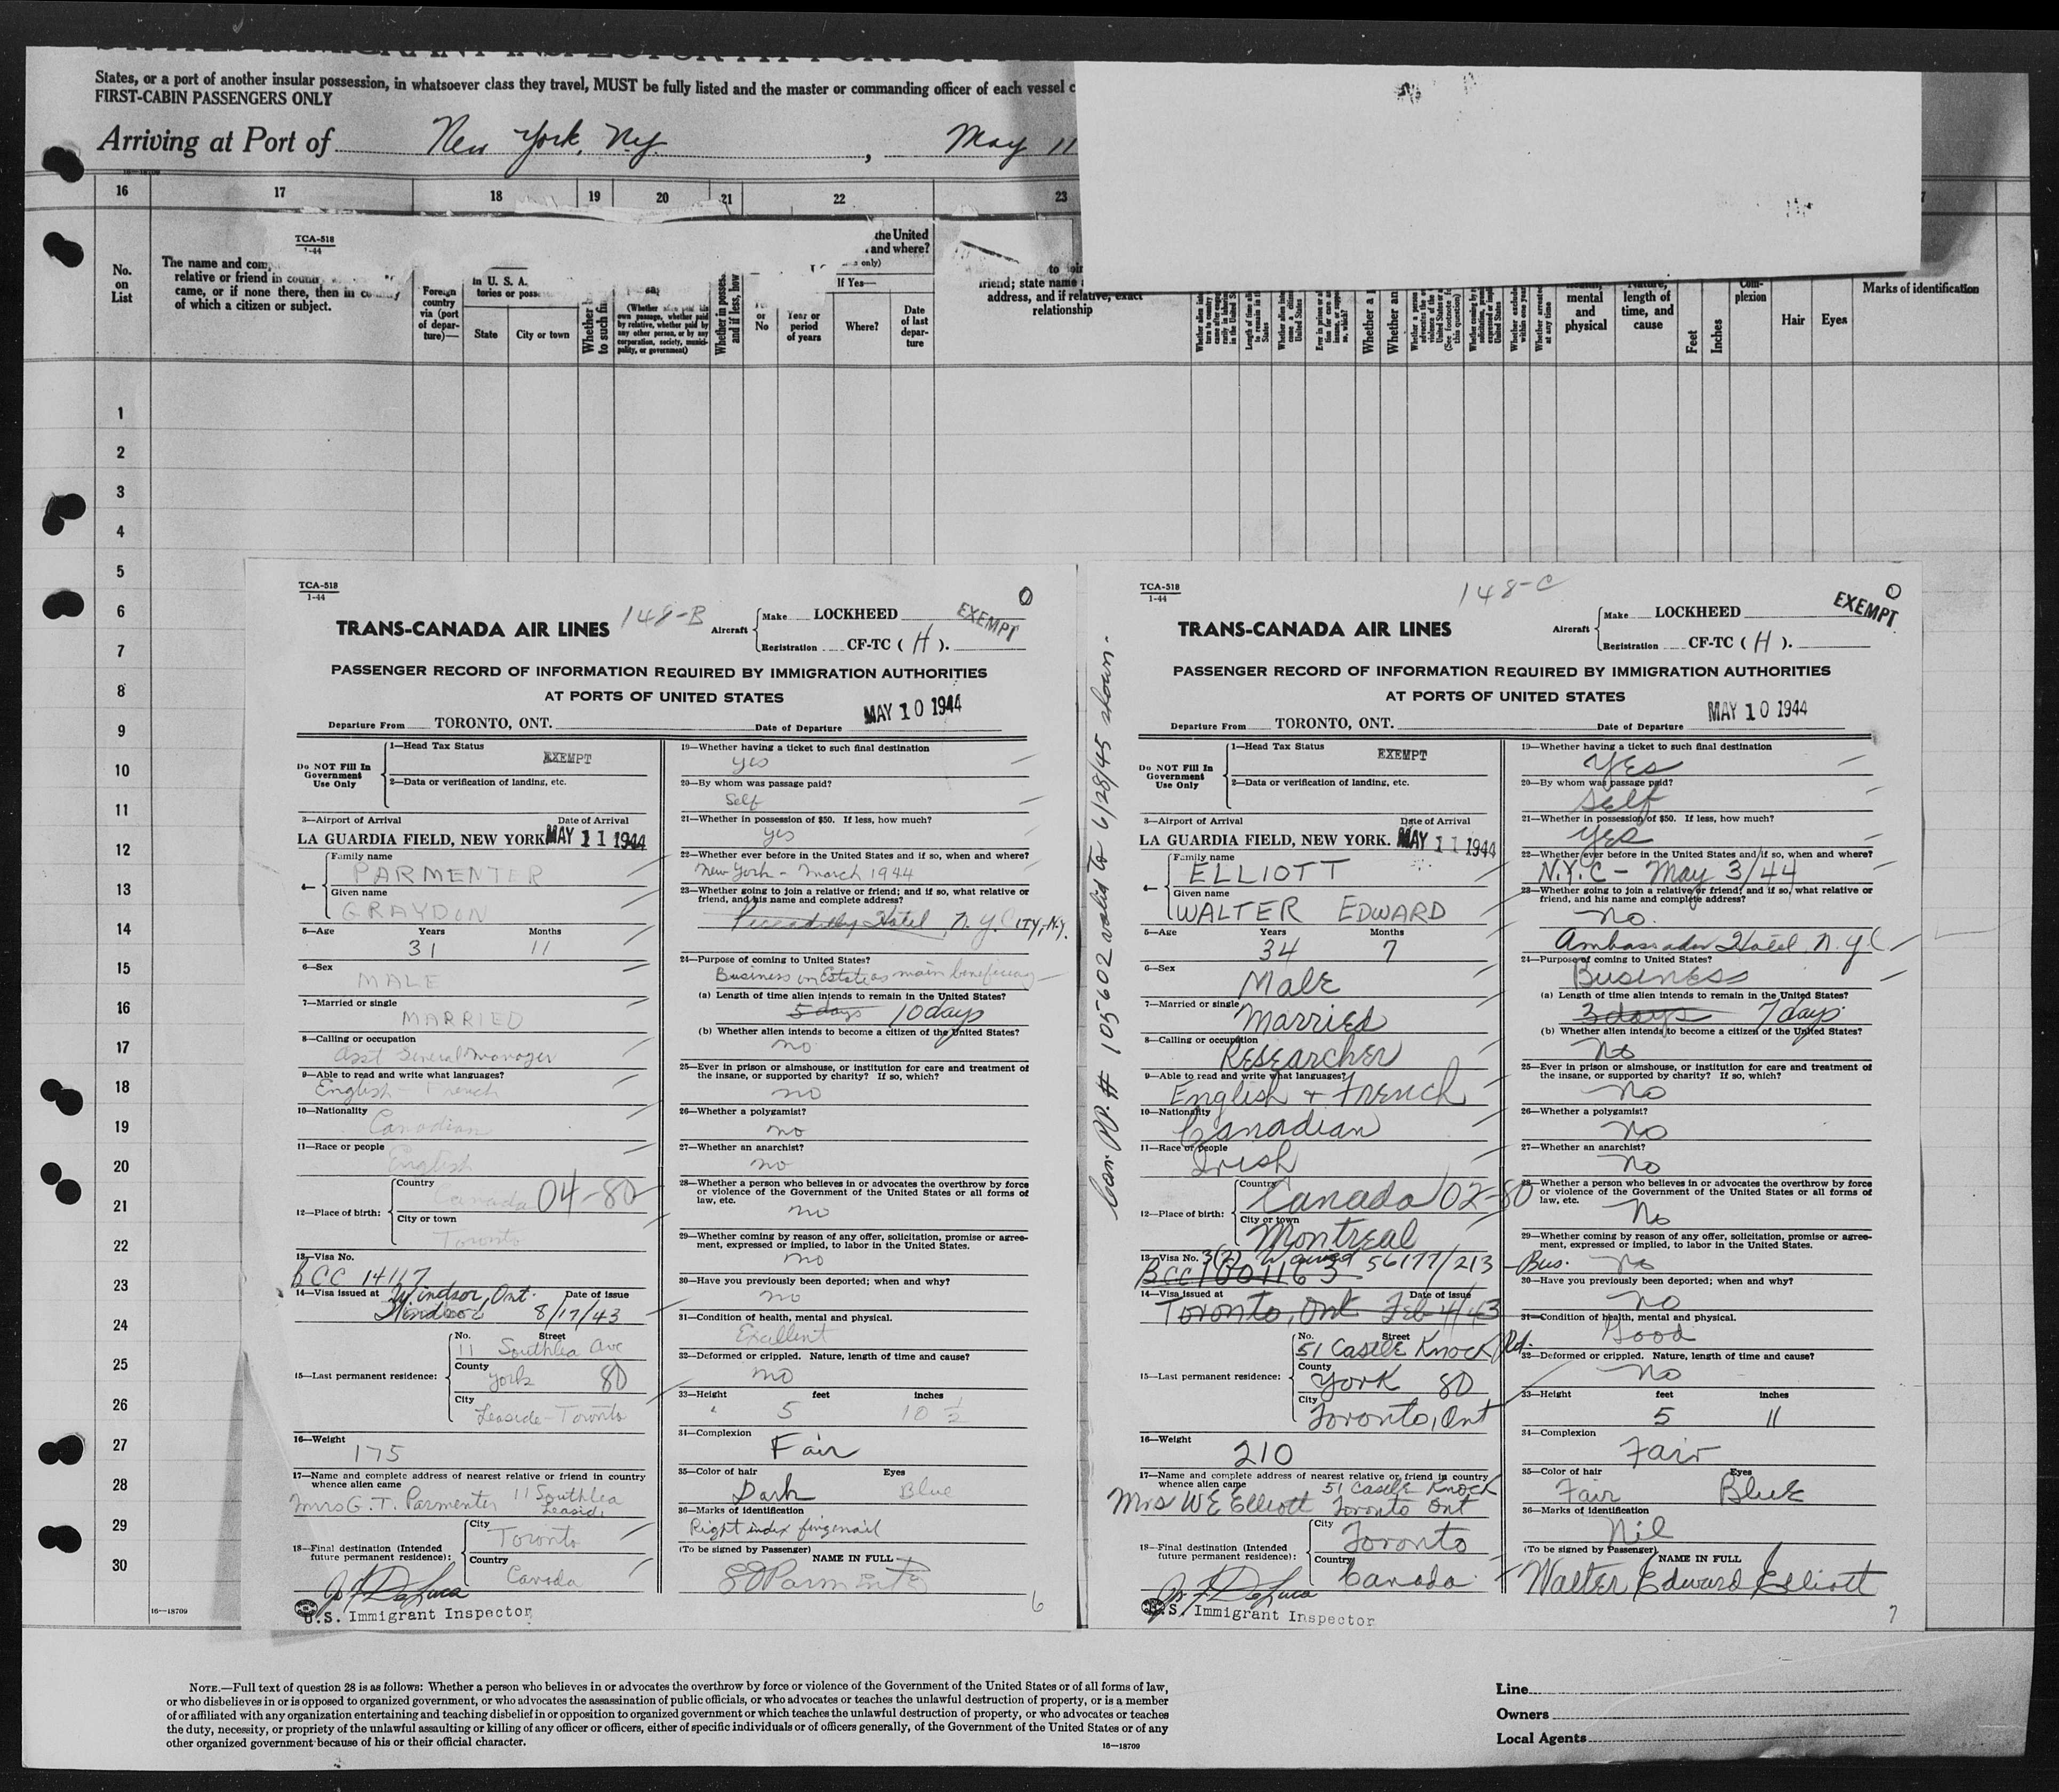 States, or a port of another insular possession, in whatsoever class they travel, MUST be fully listed and the master or commanding officer of each vessel c
FIRST-CABIN PASSENGERS ONLY
Arriving at Port of New York, N.Y. , May 11
16-18709
16 17 18 19 20 21 22 23
TCA-518
1-44
the United
and where?
only)
No. on List
The name and com
relative or friend in coun
came, or if none there, then in country
of which a citizen or subject.
Foreign country via (port of departure)—
in U. S. A.
State
City or town
Whether
to such fi
(Whether alien paid his own passage, whether paid by relative, whether paid by any other person, or by any corporation, society, municipality, or government)
Whether in posses
and if less, how
or No
If Yes—
Year or period of years
Where?
Date of last departure
to join
friend; state name
address, and if relative, exact
relationship
Whether a
Whether an
mental and physical
Nature, length of time, and cause
Feet
Inches
Complexion
Hair
Eyes
Marks of identification
1
2
3
4
5
6
7
8
9
10
11
12
13
14
15
16
17
18
19
20
21
22
23
24
25
26
27
28
29
30
16—18709
TCA-518
1-44
148-B
O
EXEMPT
TRANS-CANADA AIR LINES
Aircraft
Make LOCKHEED
Registration CF-TC ( H ).
PASSENGER RECORD OF INFORMATION REQUIRED BY IMMIGRATION AUTHORITIES
AT PORTS OF UNITED STATES
Departure From TORONTO, ONT. Date of Departure MAY 10 1944
Do NOT Fill In Government Use Only
1—Head Tax Status EXEMPT
2—Data or verification of landing, etc.
3—Airport of Arrival Date of Arrival
LA GUARDIA FIELD, NEW YORK MAY 11 1944
4—
Family name
PARMENTER
Given name
GRAYDON
5—Age Years Months
31 11
6—Sex
MALE
7—Married or single
MARRIED
8—Calling or occupation
Asst General Manager
9—Able to read and write what languages?
English French
10—Nationality
Canadian
11—Race or people
English
12—Place of birth:
Country
Canada 04-80
City or town
Toronto
13—Visa No.
BCC 14117
14—Visa issued at Windsor, Ont. Date of issue
Windsor 8/17/43
15—Last permanent residence:
No. Street
11 Southlea Ave
County
York 80
City
Leaside-Toronto
16—Weight
175
17—Name and complete address of nearest relative or friend in country
whence alien came
Mrs G. T. Parmenter 11 Southlea
Leaside
18—Final destination (Intended future permanent residence):
City
Toronto
Country
Canada
U.S. Immigrant Inspector
19—Whether having a ticket to such final destination
yes
20—By whom was passage paid?
Self
21—Whether in possession of $50. If less, how much?
yes
22—Whether ever before in the United States and if so, when and where?
New York - March 1944
23—Whether going to join a relative or friend; and if so, what relative or
friend, and his name and complete address?
Piccadilly Hotel, N.Y. CITY, N.Y.
24—Purpose of coming to United States?
Business in Estate as main beneficiary
(a) Length of time alien intends to remain in the United States?
5 days 10 days
(b) Whether alien intends to become a citizen of the United States?
no
25—Ever in prison or almshouse, or institution for care and treatment of
the insane, or supported by charity? If so, which?
no
26—Whether a polygamist?
no
27—Whether an anarchist?
no
28—Whether a person who believes in or advocates the overthrow by force
or violence of the Government of the United States or all forms of
law, etc.
no
29—Whether coming by reason of any offer, solicitation, promise or agree-
ment, expressed or implied, to labor in the United States.
no
30—Have you previously been deported; when and why?
no
31—Condition of health, mental and physical.
Excellent
32—Deformed or crippled. Nature, length of time and cause?
no
33—Height feet inches
5 10 1/2
34—Complexion
Fair
35—Color of hair Eyes
Dark Blue
36—Marks of identification
Right index fingernail
(To be signed by Passenger)
NAME IN FULL
6
Can. PP. # 105602 valid to 6/28/45 shown.
TCA-518
1-44
148-C
O
EXEMPT
TRANS-CANADA AIR LINES
Aircraft
Make LOCKHEED
Registration CF-TC ( H ).
PASSENGER RECORD OF INFORMATION REQUIRED BY IMMIGRATION AUTHORITIES
AT PORTS OF UNITED STATES
Departure From TORONTO, ONT. Date of Departure MAY 10 1944
Do NOT Fill In Government Use Only
1—Head Tax Status EXEMPT
2—Data or verification of landing, etc.
3—Airport of Arrival Date of Arrival
LA GUARDIA FIELD, NEW YORK. MAY 11 1944
4—
Family name
ELLIOTT
Given name
WALTER EDWARD
5—Age Years Months
34 7
6—Sex
Male
7—Married or single
Married
8—Calling or occupation
Researcher
9—Able to read and write what languages?
English + French
10—Nationality
Canadian
11—Race or people
Irish
12—Place of birth:
Country
Canada 02-80
City or town
Montreal
13—Visa No. 3(2) Waived 56177/213 - Bus.
BCC 1001163
14—Visa issued at Date of issue
Toronto, Ont Feb 4/43
15—Last permanent residence:
No. Street
51 Castle Knock Rd.
County
York 80
City
Toronto, Ont
16—Weight
210
17—Name and complete address of nearest relative or friend in country
whence alien came 51 Castle Knock
Mrs W E Elliott Toronto Ont
18—Final destination (Intended future permanent residence):
City
Toronto
Country
Canada
U.S. Immigrant Inspector
19—Whether having a ticket to such final destination
Yes
20—By whom was passage paid?
Self
21—Whether in possession of $50. If less, how much?
Yes
22—Whether ever before in the United States and if so, when and where?
N.Y.C - May 3/44
23—Whether going to join a relative or friend; and if so, what relative or
friend, and his name and complete address?
No.
Ambassador Hotel, N.Y.C
24—Purpose of coming to United States?
Business
(a) Length of time alien intends to remain in the United States?
3 days 7 days
(b) Whether alien intends to become a citizen of the United States?
No
25—Ever in prison or almshouse, or institution for care and treatment of
the insane, or supported by charity? If so, which?
No
26—Whether a polygamist?
No
27—Whether an anarchist?
No
28—Whether a person who believes in or advocates the overthrow by force
or violence of the Government of the United States or all forms of
law, etc.
No
29—Whether coming by reason of any offer, solicitation, promise or agree-
ment, expressed or implied, to labor in the United States.
No
30—Have you previously been deported; when and why?
No
31—Condition of health, mental and physical.
Good
32—Deformed or crippled. Nature, length of time and cause?
No
33—Height feet inches
5 11
34—Complexion
Fair
35—Color of hair Eyes
Fair Blue
36—Marks of identification
Nil
(To be signed by Passenger)
NAME IN FULL
Walter Edward Elliott
7
NOTE.—Full text of question 28 is as follows: Whether a person who believes in or advocates the overthrow by force or violence of the Government of the United States or of all forms of law,
or who disbelieves in or is opposed to organized government, or who advocates the assassination of public officials, or who advocates or teaches the unlawful destruction of property, or is a member
of or affiliated with any organization entertaining and teaching disbelief in or opposition to organized government or which teaches the unlawful destruction of property, or who advocates or teaches
the duty, necessity, or propriety of the unlawful assaulting or killing of any officer or officers, either of specific individuals or of officers generally, of the Government of the United States or of any
other organized government because of his or their official character.
16—18709
Line
Owners
Local Agents